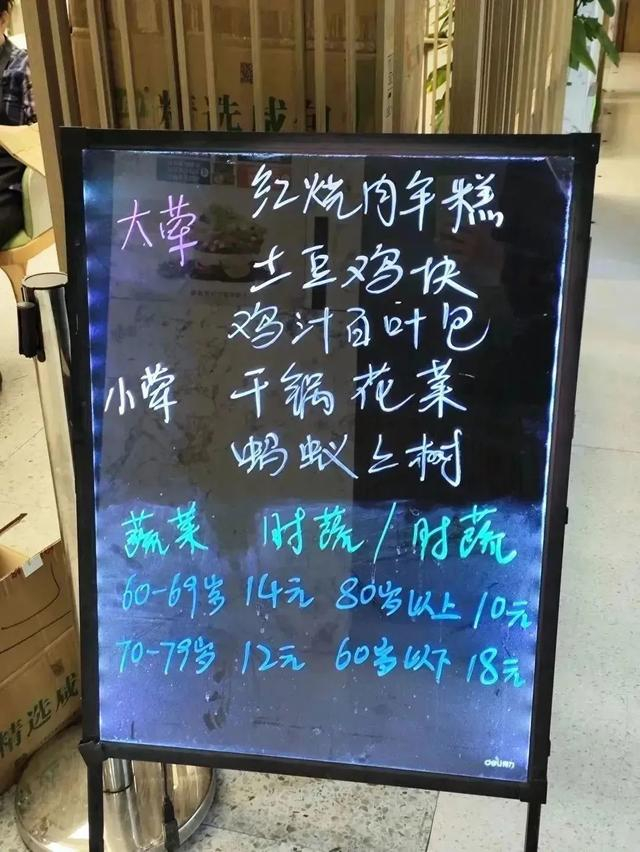 精选威
大荤 红烧肉年糕
土豆鸡块
鸡汁百叶包
小荤 干锅花菜
蚂蚁上树
蔬菜 时蔬/时蔬
60-69岁 14元 80岁以上 10元
70-79岁 12元 60岁以下 18元
精选威
deli得力